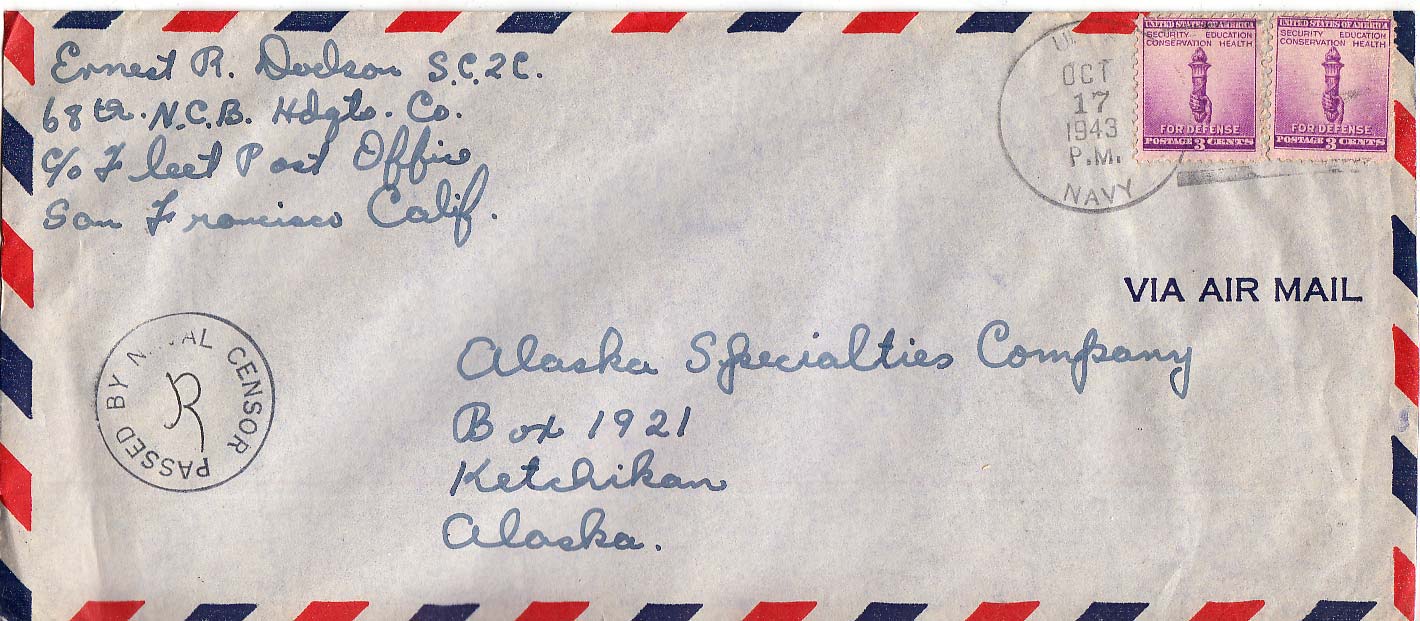 Ernest R. Dodson S.C.2C.
68th. N.C.B. Hdqts. Co.
c/o Fleet Post Office
San Francisco Calif.
OCT
17
1943
P.M.
NAVY
UNITED STATES OF AMERICA
SECURITY EDUCATION
CONSERVATION HEALTH
FOR DEFENSE
POSTAGE 3 CENTS
UNITED STATES OF AMERICA
SECURITY EDUCATION
CONSERVATION HEALTH
FOR DEFENSE
POSTAGE 3 CENTS
VIA AIR MAIL
PASSED BY NAVAL CENSOR
R
Alaska Specialties Company
Box 1921
Ketchikan
Alaska.